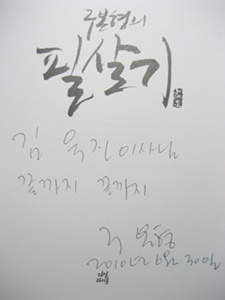 구본형의
필살기
김 욱진 이사님
끝까지 끝까지
구본형
2010년 6월 30일